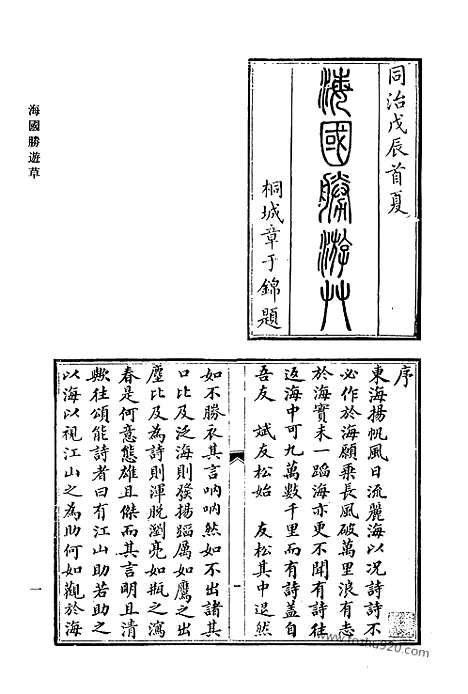 同治戊辰首夏
海國勝游艸
桐城章于錦題
序
東海揚帆風日流麗海以況詩詩不
必作於海願乘長風破萬里浪有志
於海實未一蹈海亦更不聞有詩往
返海中可九萬數千里而有詩蓋自
吾友 斌友松始 友松其中退然
如不勝衣其言吶吶然如不出諸其
口比及泛海則發揚蹈厲如鷹之出
塵比及為詩則渾脫瀏亮如瓶之瀉
春是何意態雄且傑而其言明且清
歟往頌能詩者曰有江山助若助之
以海以視江山之為助何如觀於海
一
海國勝遊草
一